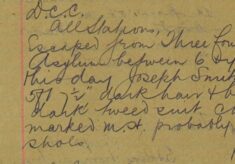 D.C.C.
All Stations,
Escaped from Three Fou
Asylum between 6
this day Joseph Smit
5ft 7½" dark hair & b
dark tweed suit
marked M.H. probably
shoes.